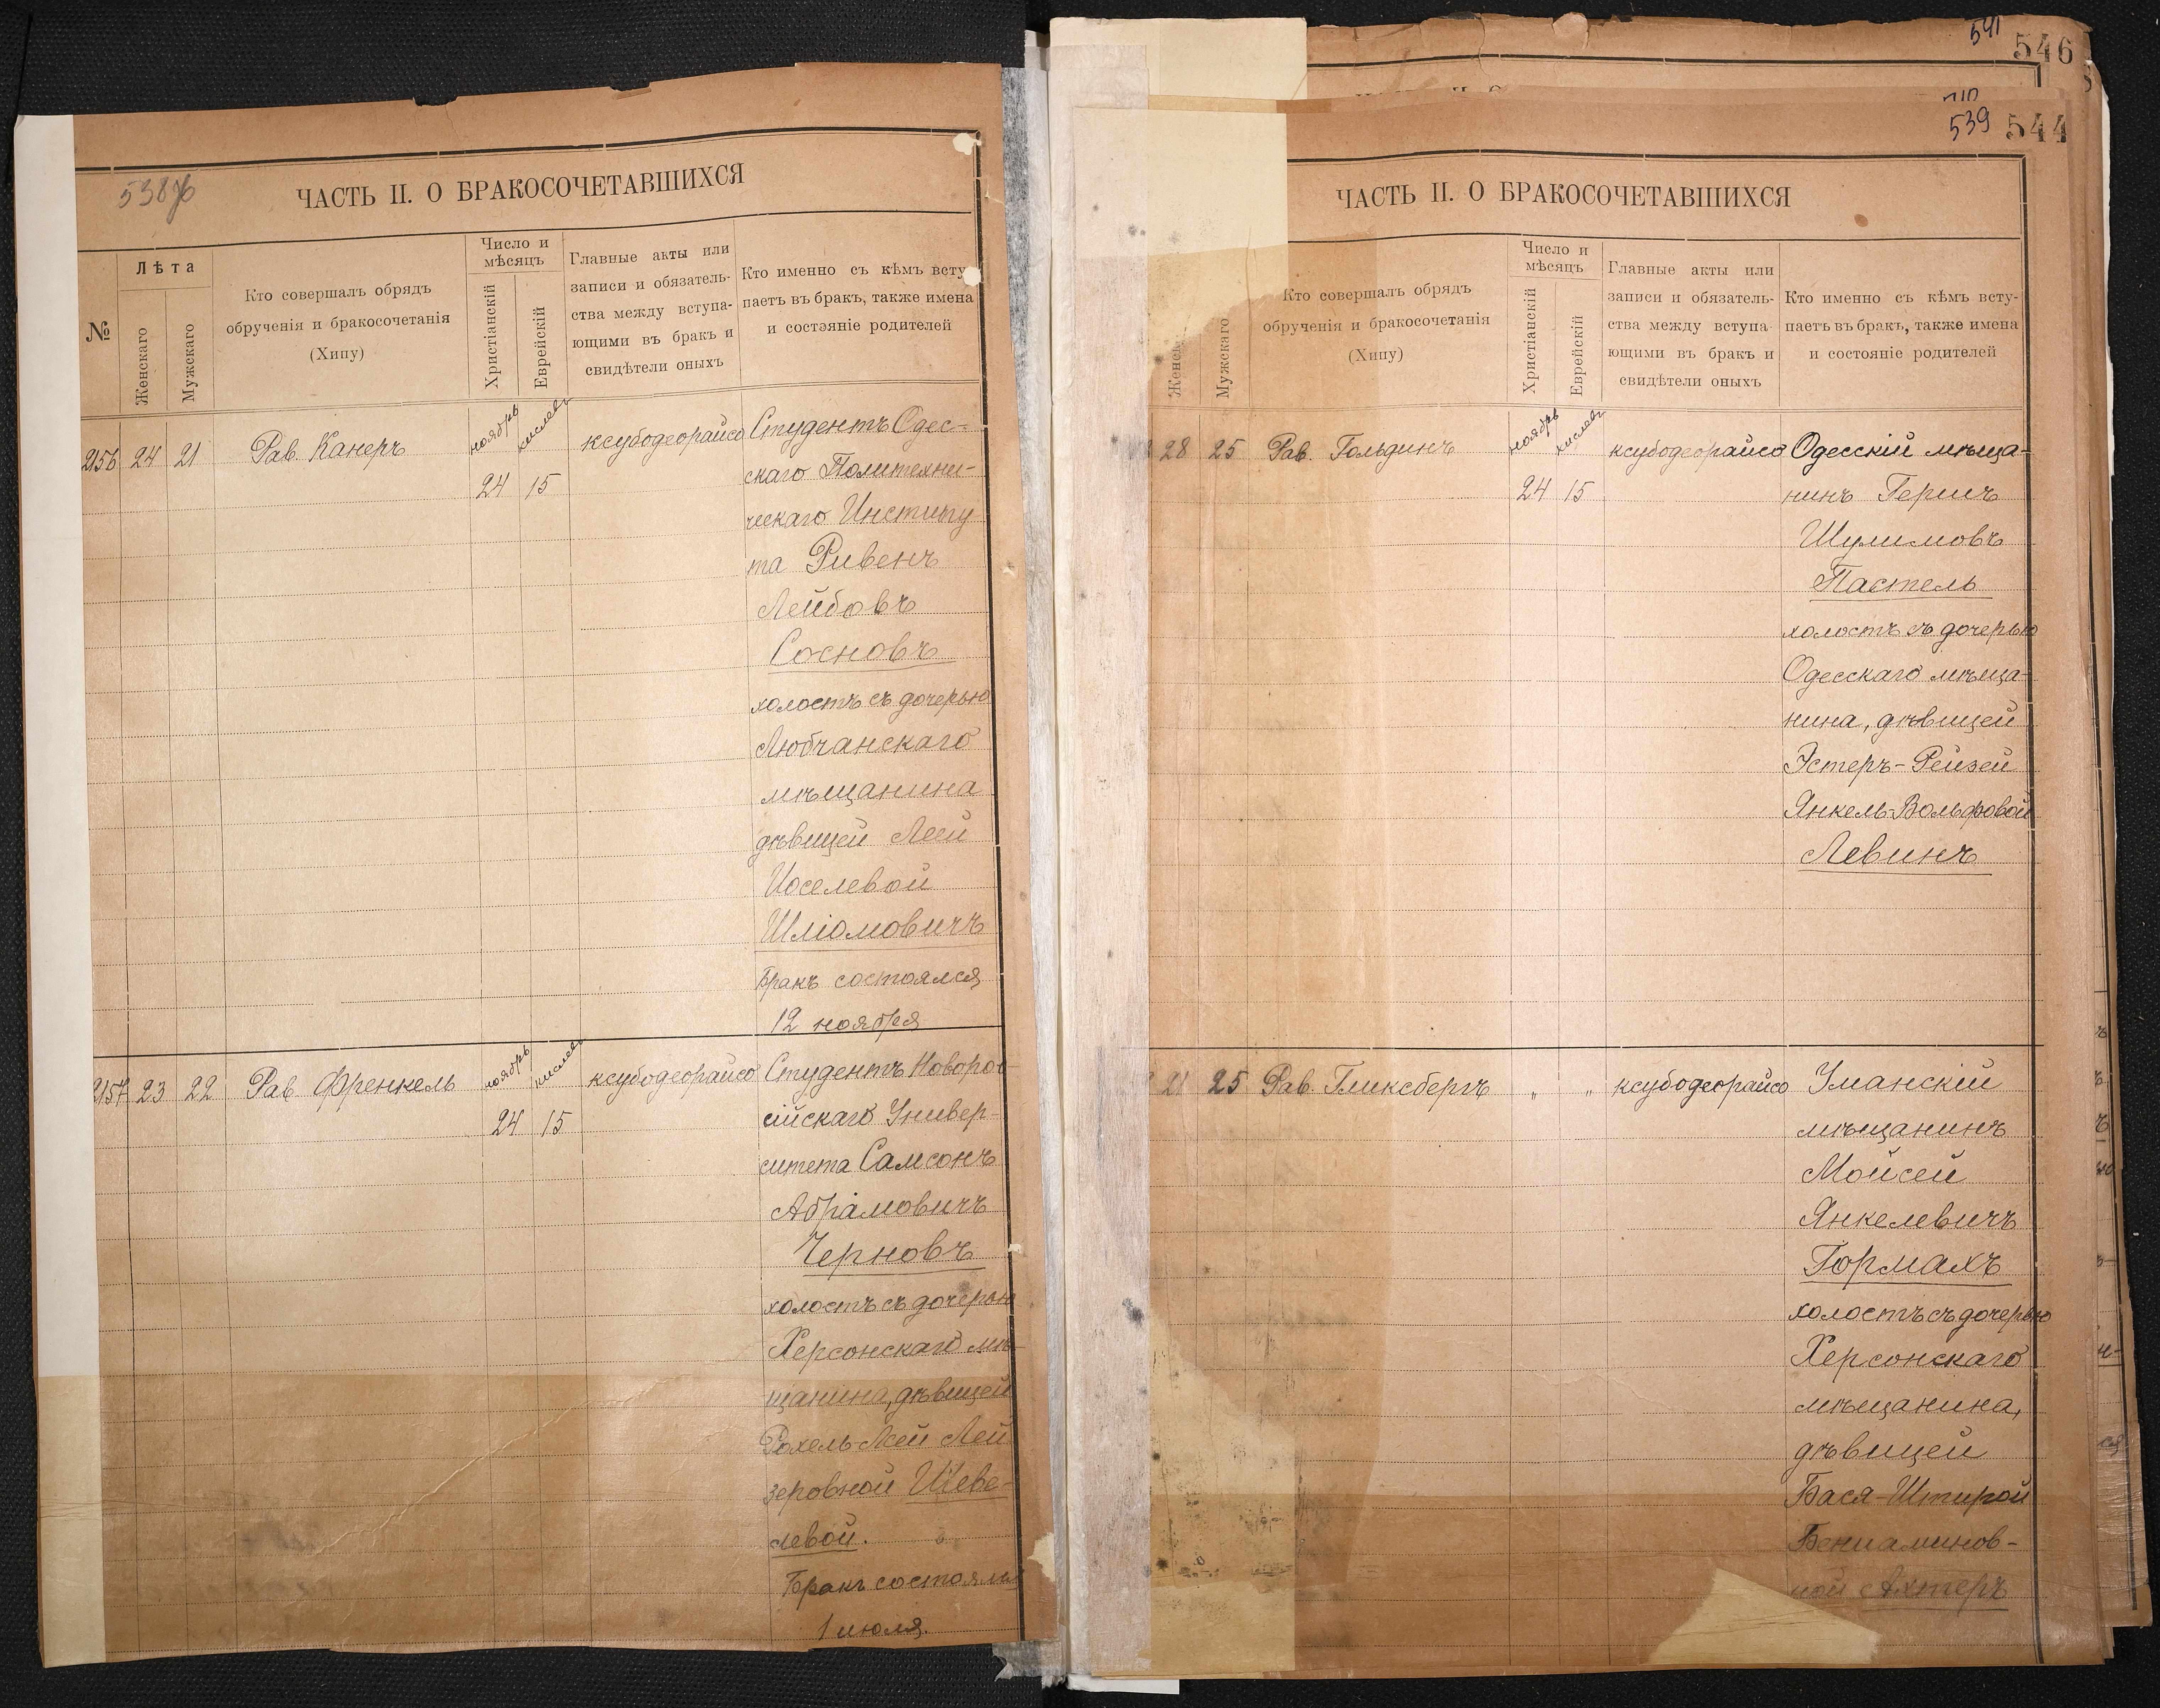 538 об
ЧАСТЬ II. О БРАКОСОЧЕТАВШИХСЯ
№
Лѣта
Женскаго
Мужскаго
Кто совершалъ обрядъ
обрученія и бракосочетанія
(Хипу)
Число и
мѣсяцъ
Христіанскій
Еврейскій
Главные акты или
записи и обязатель-
ства между вступа-
ющими въ бракъ и
свидѣтели оныхъ
Кто именно съ кѣмъ всту
паетъ въ бракъ, также имена
и состояніе родителей
2156 24 21 Рав. Канеръ ноябрь кислевъ ксубодеорайсо Студентъ Одес-
24 15 скаго Политехни-
ческаго Институ
та Рувенъ
Лейбовъ
Сосновъ
холостъ съ дочерью
Любчанскаго
мѣщанина
дѣвицей Леей
Иоселевой
Шліомовичъ
Бракъ состоялся
12 ноября
2157 23 22 Рав. Френкель ноябрь кислевъ ксубодеорайсо Студентъ Новорос-
24 15 сійскаго Универ-
ситета Самсонъ
Абрамовичъ
Черновъ
холостъ съ дочерью
Херсонскаго мѣ-
щанина, дѣвицей
Рохель-Леей Лей
зеровной Шеве-
левой.
Бракъ состоялся
1 июля.
541
546
539
544
ЧАСТЬ II. О БРАКОСОЧЕТАВШИХСЯ
Мужскаго
Кто совершалъ обрядъ
обрученія и бракосочетанія
(Хипу)
Число и
мѣсяцъ
Христіанскій
Еврейскій
Главные акты или
записи и обязатель-
ства между вступа-
ющими въ бракъ и
свидѣтели оныхъ
Кто именно съ кѣмъ всту-
паетъ въ бракъ, также имена
и состояніе родителей
28 25 Рав. Гольдинъ ноябрь кислевъ ксубодеорайсо Одесскій мѣща-
24 15 нинъ Гершъ
Шулимовъ
Пастель
холостъ съ дочерью
Одесскаго мѣща-
нина, дѣвицей
Эстеръ-Рейзей
Янкель-Вольфовой
Левинъ
21 25 Рав. Гликсбергъ " " ксубодеорайсо Уманскій
мѣщанинъ
Мойсей
Янкелевичъ
Гормахъ
холостъ съ дочерью
Херсонскаго
мѣщанина,
дѣвицей
Бася-Штирой
Бениаминов-
ной Ахтеръ